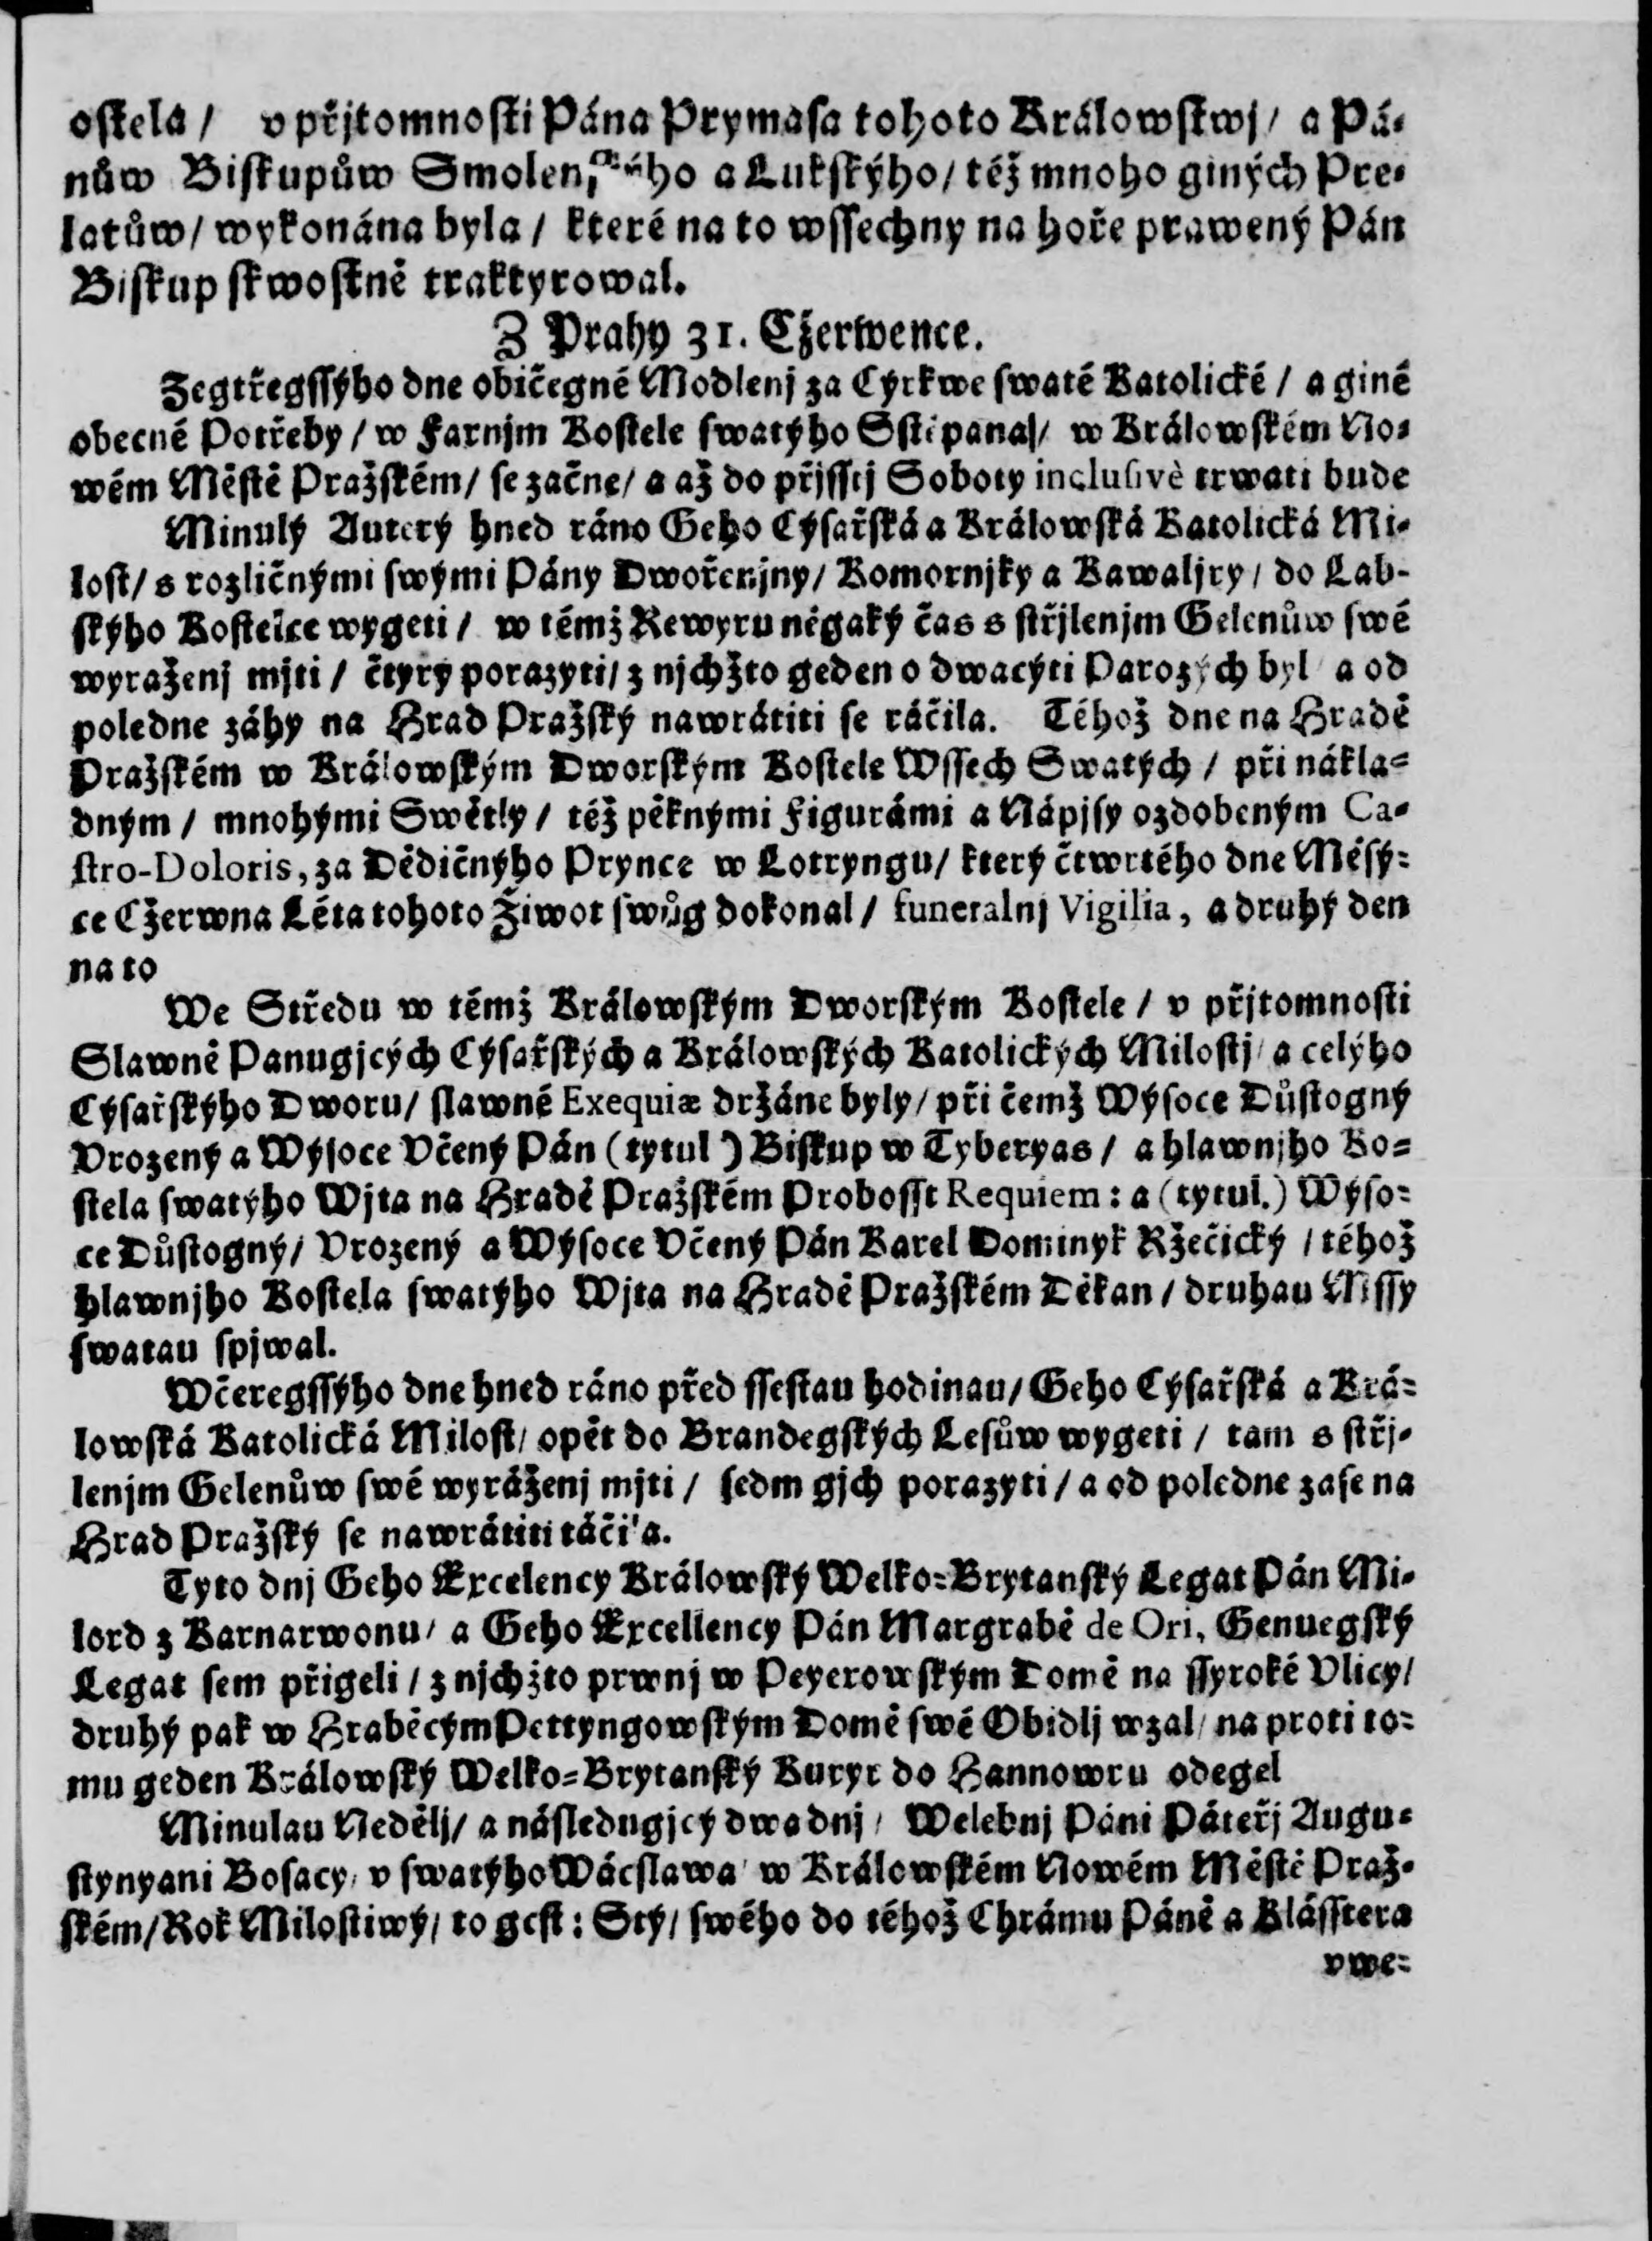 oſtela / v přjtomnoſti Pána Prymaſa tohoto Králowſtwj / a Pá-
nůw Biſkupůw a Lukſkýho / též mnoho giných Pre-
latůw / wykonána byla / které na to wſſechny na hoře prawený Pán
Biſkup ſkwoſtně traktyrowal.
Z Prahy 31. Cžerwence.
Zegtřegſſýho dne običegné Modlenj za Cýrkwe ſwaté Katolické / a giné
obecné Potřeby / w Farnjm Koſtele ſwatýho Sſtěpana / w Králowſkém No-
wém Měſtě Pražſkém / ſe začne / a až do přjſſtj Soboty inclusivè trwati bude
Minulý Auterý hned ráno Geho Cýſařſká a Králowſká Katolická Mi-
loſt / s rozličnými ſwými Pány Dwořenjny / Komornjky a Kawaljry / do Lab-
ſkýho Koſtelce wygeti / w témž Rewyru něgaký čas s ſtřjlenjm Gelenůw ſwé
wyraženj mjti / čtyry porazyti / z njchžto geden o dwacýti Parozých byl / a od
poledne záhy na Hrad Pražſký nawrátiti ſe ráčila. Téhož dne na Hradě
Pražſkém w Králowſkým Dworſkým Koſtele Wſſech Swatých / při nákla-
dným / mnohými Swětly / též pěknými Figurámi a Nápjſy ozdobeným Ca-
ſtro-Doloris, za Dědičnýho Prynce w Lotryngu / který čtwrtého dne Měſý-
ce Cžerwna Léta tohoto Žiwot ſwůg dokonal / funeralnj Vigilia, a druhý den
na to
We Středu w témž Králowſkým Dworſkým Koſtele / v přjtomnoſti
Slawně Panugjcých Cýſařſkých a Králowſkých Katolických Miloſtj / a celýho
Cýſařſkýho Dworu / ſlawné Exequiæ držáne byly / při čemž Wýſoce Důſtogný
Vrozený a Wýſoce Včený Pán (tytul) Biſkup w Tyberyas / a hlawnjho Ko-
ſtela ſwatýho Wjta na Hradě Pražſkém Proboſſt Requiem : a (tytul.) Wýſo-
ce Důſtogný / Vrozený a Wýſoce Včený Pán Karel Dominyk Ržečický / téhož
hlawnjho Koſtela ſwatýho Wjta na Hradě Pražſkém Děkan / druhau Mſſy
ſwatau ſpjwal.
Wčeregſſýho dne hned ráno před ſſeſtau hodinau / Geho Cýſařſká a Krá-
lowſká Katolická Miloſt / opět do Brandegſkých Leſůw wygeti / tam s ſtřj-
lenjm Gelenůw ſwé wyráženj mjti / ſedm gjch porazyti / a od poledne zaſe na
Hrad Pražſký ſe nawrátiti ráčila.
Tyto dnj Geho Excelency Králowſký Welko-Brytanſký Legat Pán Mi-
lord z Karnarwonu / a Geho Excellency Pán Margrabě de Ori, Genuegſký
Legat ſem přigeli / z njchžto prwnj w Peyerowſkým Domě na ſſyroké Vlicy /
druhý pak w Hraběcým Pettyngowſkým Domě ſwé Obidlj wzal / na proti to-
mu geden Králowſký Welko-Brytanſký Kuryr do Hannowru odegel
Minulau Nedělj / a náſledugjcý dwa dnj / Welebnj Páni Páteřj Augu-
ſtynyani Boſacy / v ſwatýho Wácſlawa w Králowſkém Nowém Měſtě Praž-
ſkém / Rok Miloſtiwý / to geſt : Stý / ſwého do téhož Chrámu Páně a Kláſſtera
vwe-